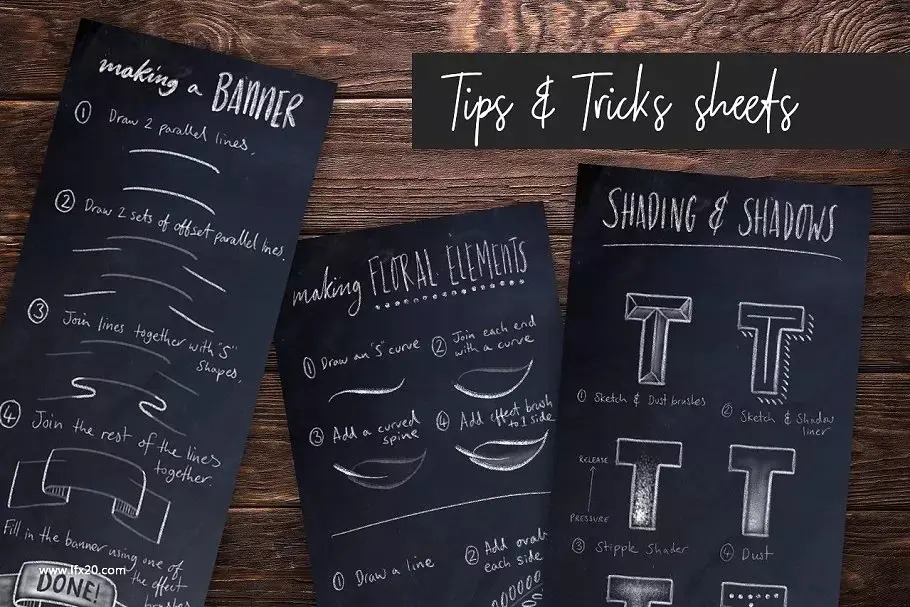 Tips & Tricks sheets
making a BANNER
① Draw 2 parallel lines.
② Draw 2 sets of offset parallel lines.
③ Join lines together with "S"
shapes.
④ Join the rest of the lines
together.
Fill in the banner using one of
the effect
brushes
DONE!
www.lfx20.com
making FLORAL ELEMENTS
① Draw an "S" curve
② Join each end
with a curve
③ Add a curved
spine
④ Add effect brush
to 1 side
① Draw a line
② Add ovals
each side
SHADING & SHADOWS
① Sketch & Dust brushes
② Sketch & Shadow
liner
RELEASE
PRESSURE
③ Stipple Shader
④ Dust
T
T
T
T